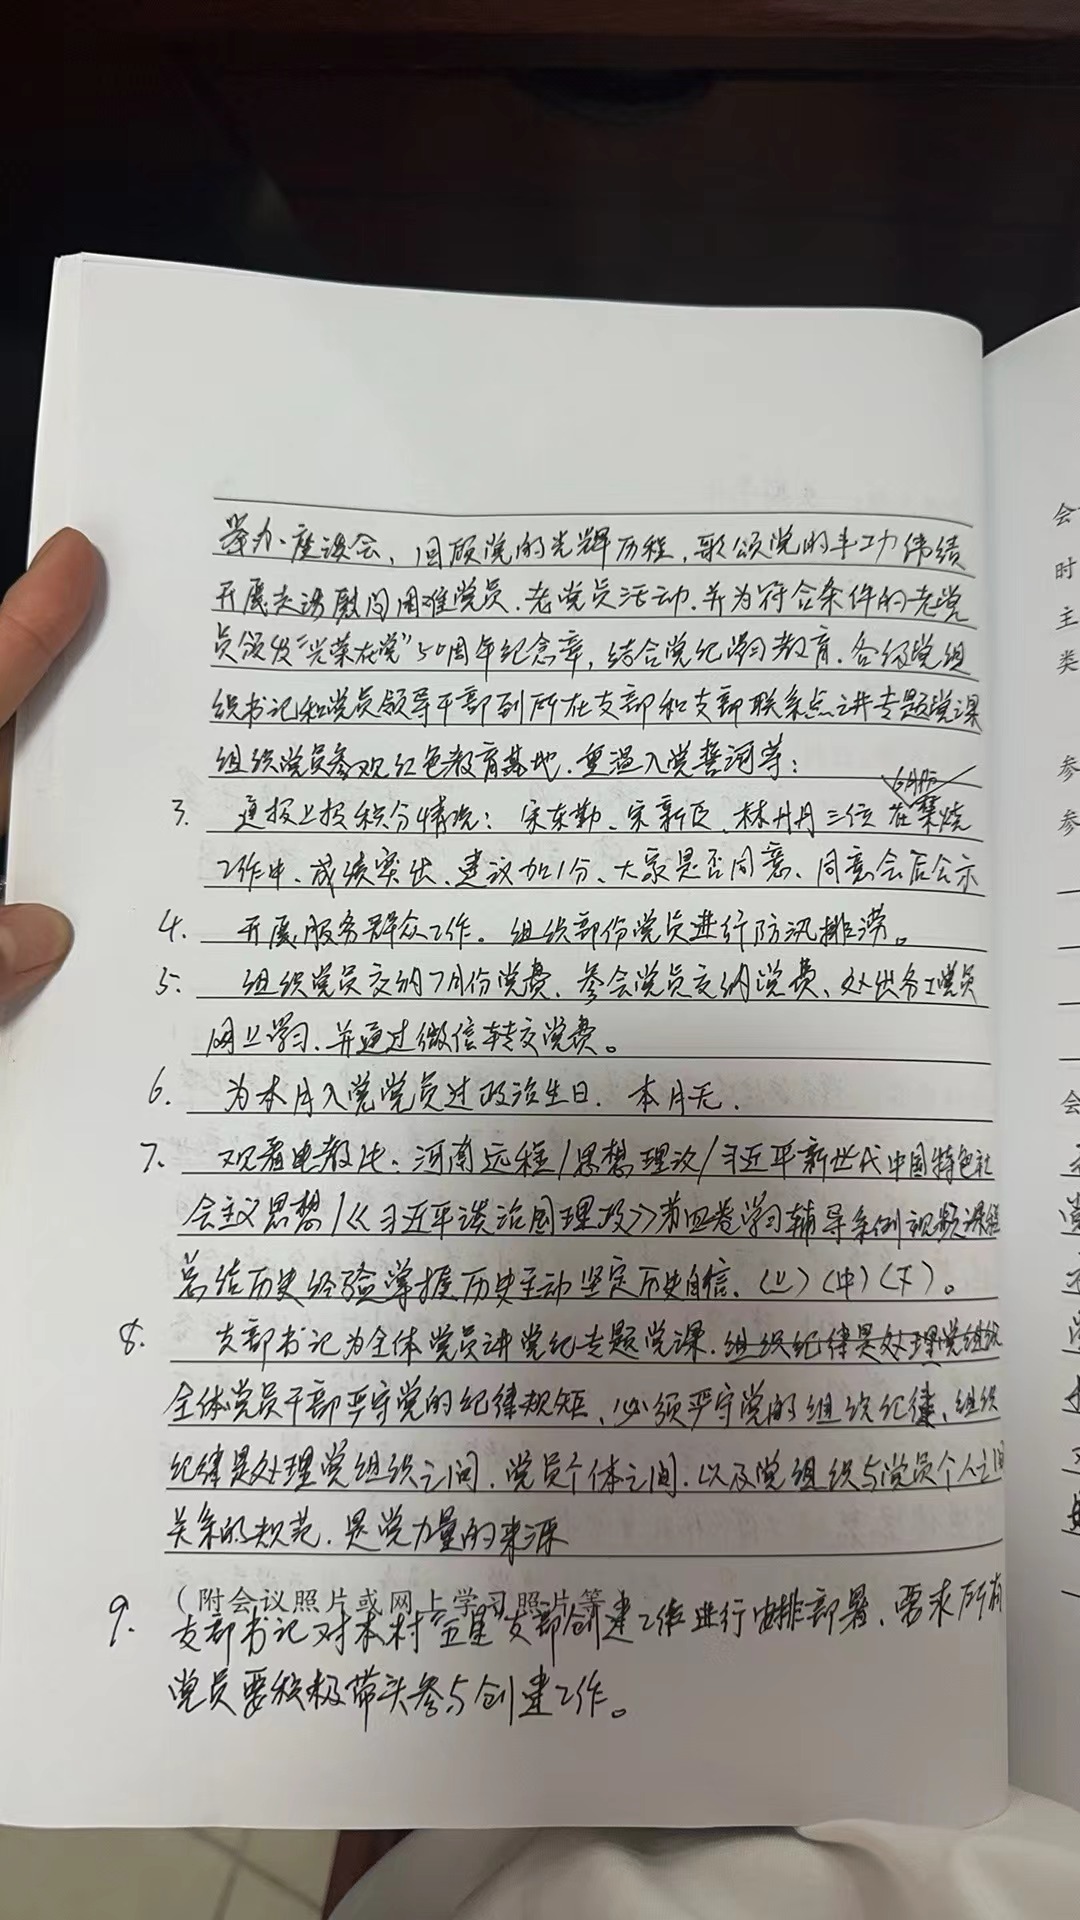 举办座谈会、回顾党的光辉历程，歌颂党的丰功伟绩
开展走访慰问困难党员、老党员活动，并为符合条件的老党
员颁发“光荣在党”50周年纪念章，结合党纪学习教育，各级党组
织书记和党员领导干部到所在支部和支部联系点讲专题党课
组织党员参观红色教育基地，重温入党誓词等；
3. 通报上报积分情况：宋东勤、宋新臣、林丹丹三位在禁烧
工作中，成绩突出、建议加1分、大家是否同意、同意会后公示
4. 开展服务群众工作。组织部份党员进行防汛排涝。
5. 组织党员交纳7月份党费、参会党员交纳党费、处出务工党员
网上学习、并通过微信转交党费。
6. 为本月入党党员过政治生日. 本月无.
7. 观看电教片：河南远程/思想理论/习近平新世代中国特色社
会主义思想/《习近平谈治国理政》第四卷学习辅导系列视频课程
总结历史经验掌握历史主动坚定历史自信、(上)(中)(下)。
8. 支部书记为全体党员讲党纪专题党课. 组织纪律是处理党组织
全体党员干部严守党的纪律规矩、必须严守党的组织纪律、组织
纪律是处理党组织之间、党员个体之间、以及党组织与党员个人之间
关系的规范，是党力量的来源
（附会议照片或网上学习照片等
9. 支部书记对本村“五星”支部创建工作进行安排部署、要求所有
党员要积极带头参与创建工作。
会
时
主
类
参
参
会